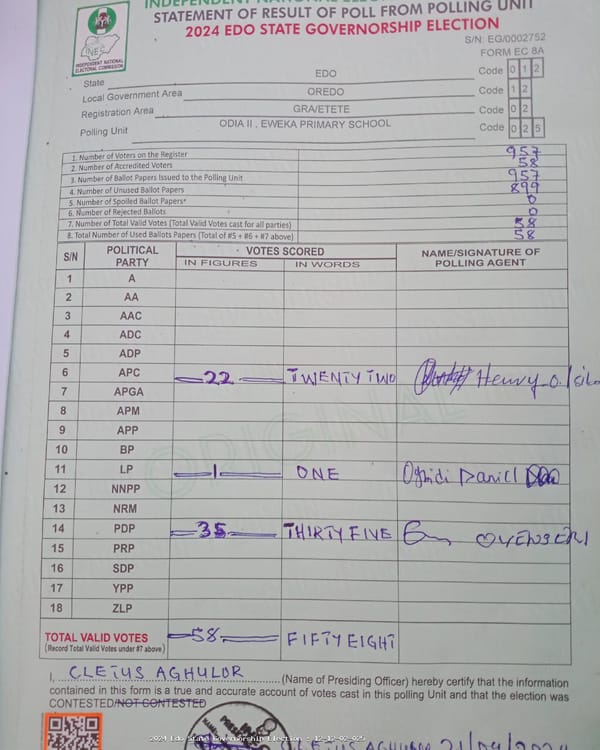 INDEPENDENT NATIONAL
STATEMENT OF RESULT OF POLL FROM POLLING UNIT
2024 EDO STATE GOVERNORSHIP ELECTION
INEC
INDEPENDENT NATIONAL
ELECTORAL COMMISSION
S/N: EG/0002752
FORM EC 8A
State EDO Code 0 1 2
Local Government Area OREDO Code 1 2
Registration Area GRA/ETETE Code 0 2
Polling Unit ODIA II . EWEKA PRIMARY SCHOOL Code 0 2 5
1. Number of Voters on the Register 957
2. Number of Accredited Voters 58
3. Number of Ballot Papers Issued to the Polling Unit 957
4. Number of Unused Ballot Papers 899
5. Number of Spoiled Ballot Papers 0
6. Number of Rejected Ballots 0
7. Number of Total Valid Votes (Total Valid Votes cast for all parties) 58
8. Total Number of Used Ballots Papers (Total of #5 + #6 + #7 above) 58
S/N POLITICAL PARTY VOTES SCORED NAME/SIGNATURE OF POLLING AGENT
IN FIGURES IN WORDS
1 A
2 AA
3 AAC
4 ADC
5 ADP
6 APC 22 TWENTY TWO Henry O.
7 APGA
8 APM
9 APP
10 BP
11 LP 1 ONE
12 NNPP
13 NRM
14 PDP 35 THIRTY FIVE
15 PRP
16 SDP
17 YPP
18 ZLP
ORIGINAL
TOTAL VALID VOTES 58 FIFTY EIGHT
(Record Total Valid Votes under #7 above)
I, CLETUS AGHULOR (Name of Presiding Officer) hereby certify that the information
contained in this form is a true and accurate account of votes cast in this polling Unit and that the election was
CONTESTED/NOT CONTESTED
2024 Edo State Governorship Election - 12-12-02-025
CLETUS AGHULOR